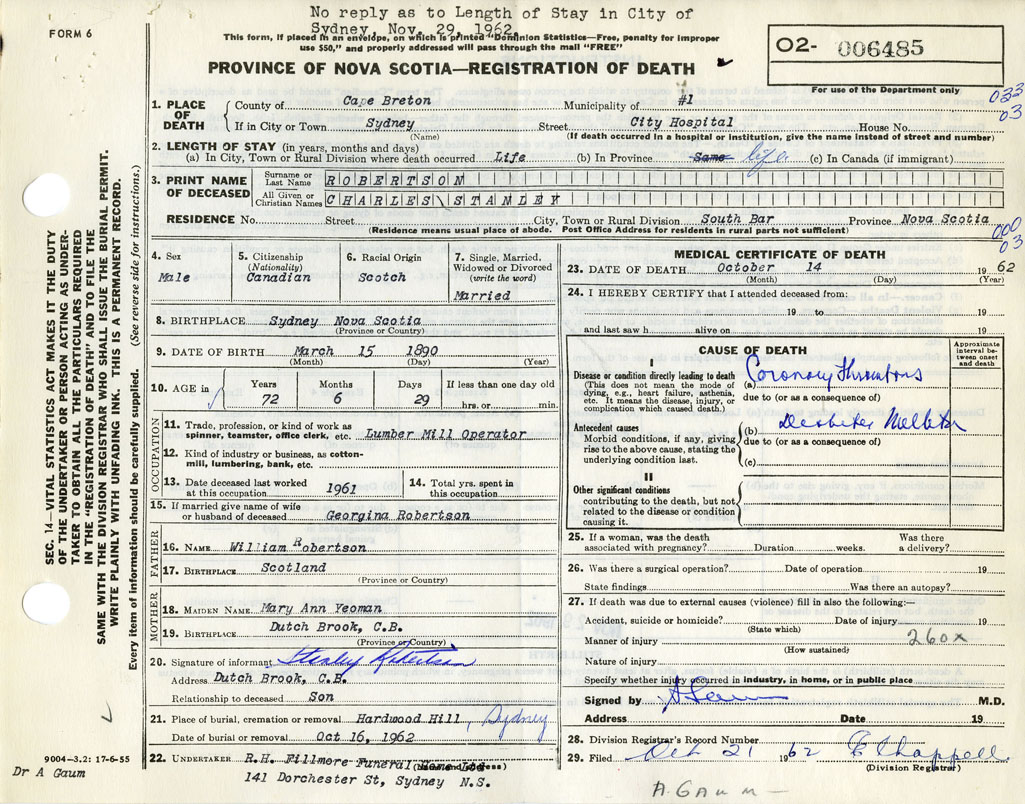 No reply as to Length of Stay in City of
Sydney, Nov. 29, 1962.
FORM 6
This form, if placed in an envelope, on which is printed "Dominion Statistics—Free, penalty for improper
use $50," and properly addressed will pass through the mail "FREE"
PROVINCE OF NOVA SCOTIA—REGISTRATION OF DEATH
O2- 006485
For use of the Department only
033
03
1. PLACE OF DEATH
County of Cape Breton Municipality of #1
If in City or Town Sydney Street City Hospital House No.
(Name) (If death occurred in a hospital or institution, give the name instead of street and number)
2. LENGTH OF STAY (in years, months and days)
(a) In City, Town or Rural Division where death occurred Life (b) In Province Same life (c) In Canada (if immigrant)
3. PRINT NAME OF DECEASED
Surname or Last Name ROBERTSON
All Given or Christian Names CHARLES\STANLEY
RESIDENCE No. Street City, Town or Rural Division South Bar Province Nova Scotia
(Residence means usual place of abode. Post Office Address for residents in rural parts not sufficient)
000
03
4. Sex Male
5. Citizenship (Nationality) Canadian
6. Racial Origin Scotch
7. Single, Married, Widowed or Divorced (write the word) Married
8. BIRTHPLACE Sydney Nova Scotia
(Province or Country)
9. DATE OF BIRTH March 15 1890
(Month) (Day) (Year)
10. AGE in Years Months Days If less than one day old
72 6 29 hrs. or min.
OCCUPATION
11. Trade, profession, or kind of work as
spinner, teamster, office clerk, etc. Lumber Mill Operator
12. Kind of industry or business, as cotton-
mill, lumbering, bank, etc.
13. Date deceased last worked at this occupation 1961
14. Total yrs. spent in this occupation
15. If married give name of wife
or husband of deceased Georgina Robertson
FATHER
16. NAME William Robertson
17. BIRTHPLACE Scotland
(Province or Country)
MOTHER
18. MAIDEN NAME Mary Ann Yeoman
19. BIRTHPLACE Dutch Brook, C.B.
(Province or Country)
20. Signature of informant Stanley Robertson
Address Dutch Brook, C.B.
Relationship to deceased Son
21. Place of burial, cremation or removal Hardwood Hill, Sydney
Date of burial or removal Oct 16, 1962
22. UNDERTAKER R.H. Fillmore Funeral Home Ltd
141 Dorchester St, Sydney N.S.
MEDICAL CERTIFICATE OF DEATH
23. DATE OF DEATH October 14 1962
(Month) (Day) (Year)
24. I HEREBY CERTIFY that I attended deceased from:
19 to 19
and last saw h alive on 19
CAUSE OF DEATH
Approximate interval between onset and death
I
Disease or condition directly leading to death
(This does not mean the mode of
dying, e.g., heart failure, asthenia,
etc. It means the disease, injury, or
complication which caused death.)
(a) Coronary Thrombosis
due to (or as a consequence of)
Antecedent causes
Morbid conditions, if any, giving
rise to the above cause, stating the
underlying condition last.
(b) Diabetes Mellitus
due to (or as a consequence of)
(c)
II
Other significant conditions
contributing to the death, but not
related to the disease or condition
causing it.
25. If a woman, was the death Was there
associated with pregnancy? Duration weeks. a delivery?
26. Was there a surgical operation? Date of operation 19
State findings Was there an autopsy?
27. If death was due to external causes (violence) fill in also the following:—
Accident, suicide or homicide? Date of injury 19
(State which)
Manner of injury 260x
(How sustained)
Nature of injury
Specify whether injury occurred in industry, in home, or in public place
Signed by A Gaum M.D.
Address Date 19
28. Division Registrar's Record Number
29. Filed Oct 21 1962 E Chappell
(Division Registrar)
A. GAUM
SEC. 14—VITAL STATISTICS ACT MAKES IT THE DUTY
OF THE UNDERTAKER OR PERSON ACTING AS UNDER-
TAKER TO OBTAIN ALL THE PARTICULARS REQUIRED
IN THE "REGISTRATION OF DEATH" AND TO FILE THE
SAME WITH THE DIVISION REGISTRAR WHO SHALL ISSUE THE BURIAL PERMIT.
WRITE PLAINLY WITH UNFADING INK. THIS IS A PERMANENT RECORD.
Every item of information should be carefully supplied. (See reverse side for instructions.)
9004-3.2: 17-6-55
Dr A Gaum